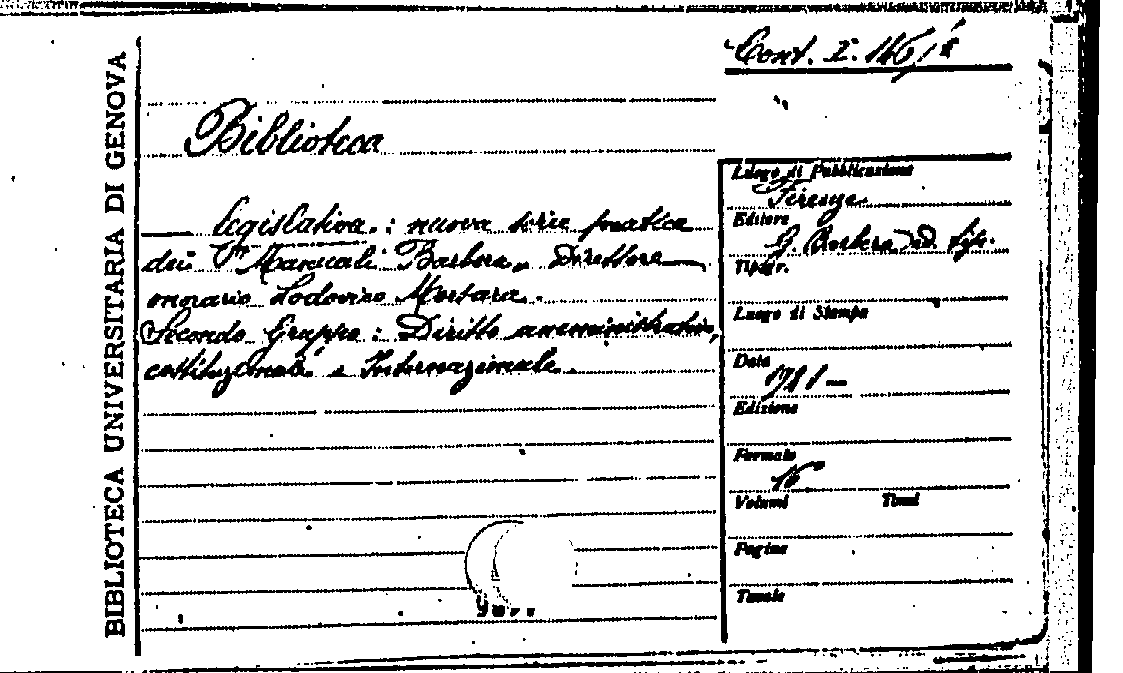 BIBLIOTECA UNIVERSITARIA DI GENOVA
Cont. I. 146/
Biblioteca
legislativa : nuova serie pratica
dei "Manuali Barbera" Direttore
onorario Lodovico Mortara.
Secondo Gruppo : Diritto amministrativo,
costituzionale e Internazionale.
Luogo di Pubblicazione
Firenze
Editore
G. Barbera
Tipogr.
Luogo di Stampa
Data
Edizione
Formato
16°
Volumi Tomi
Pagine
Tavole